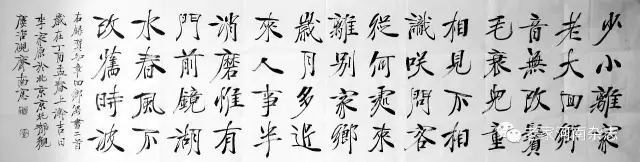 少小離家
老大回鄉
音無改鬢
毛衰兒童
相見不相
識咲問客
從何處來
離別家鄉
歲月多近
來人事半
消磨惟有
門前鏡湖
水春風不
改舊時波
右録賀知章回鄉偶書二首
歲在丁酉孟春上澣吉日
於北京京北靜觀
老家河南杂志